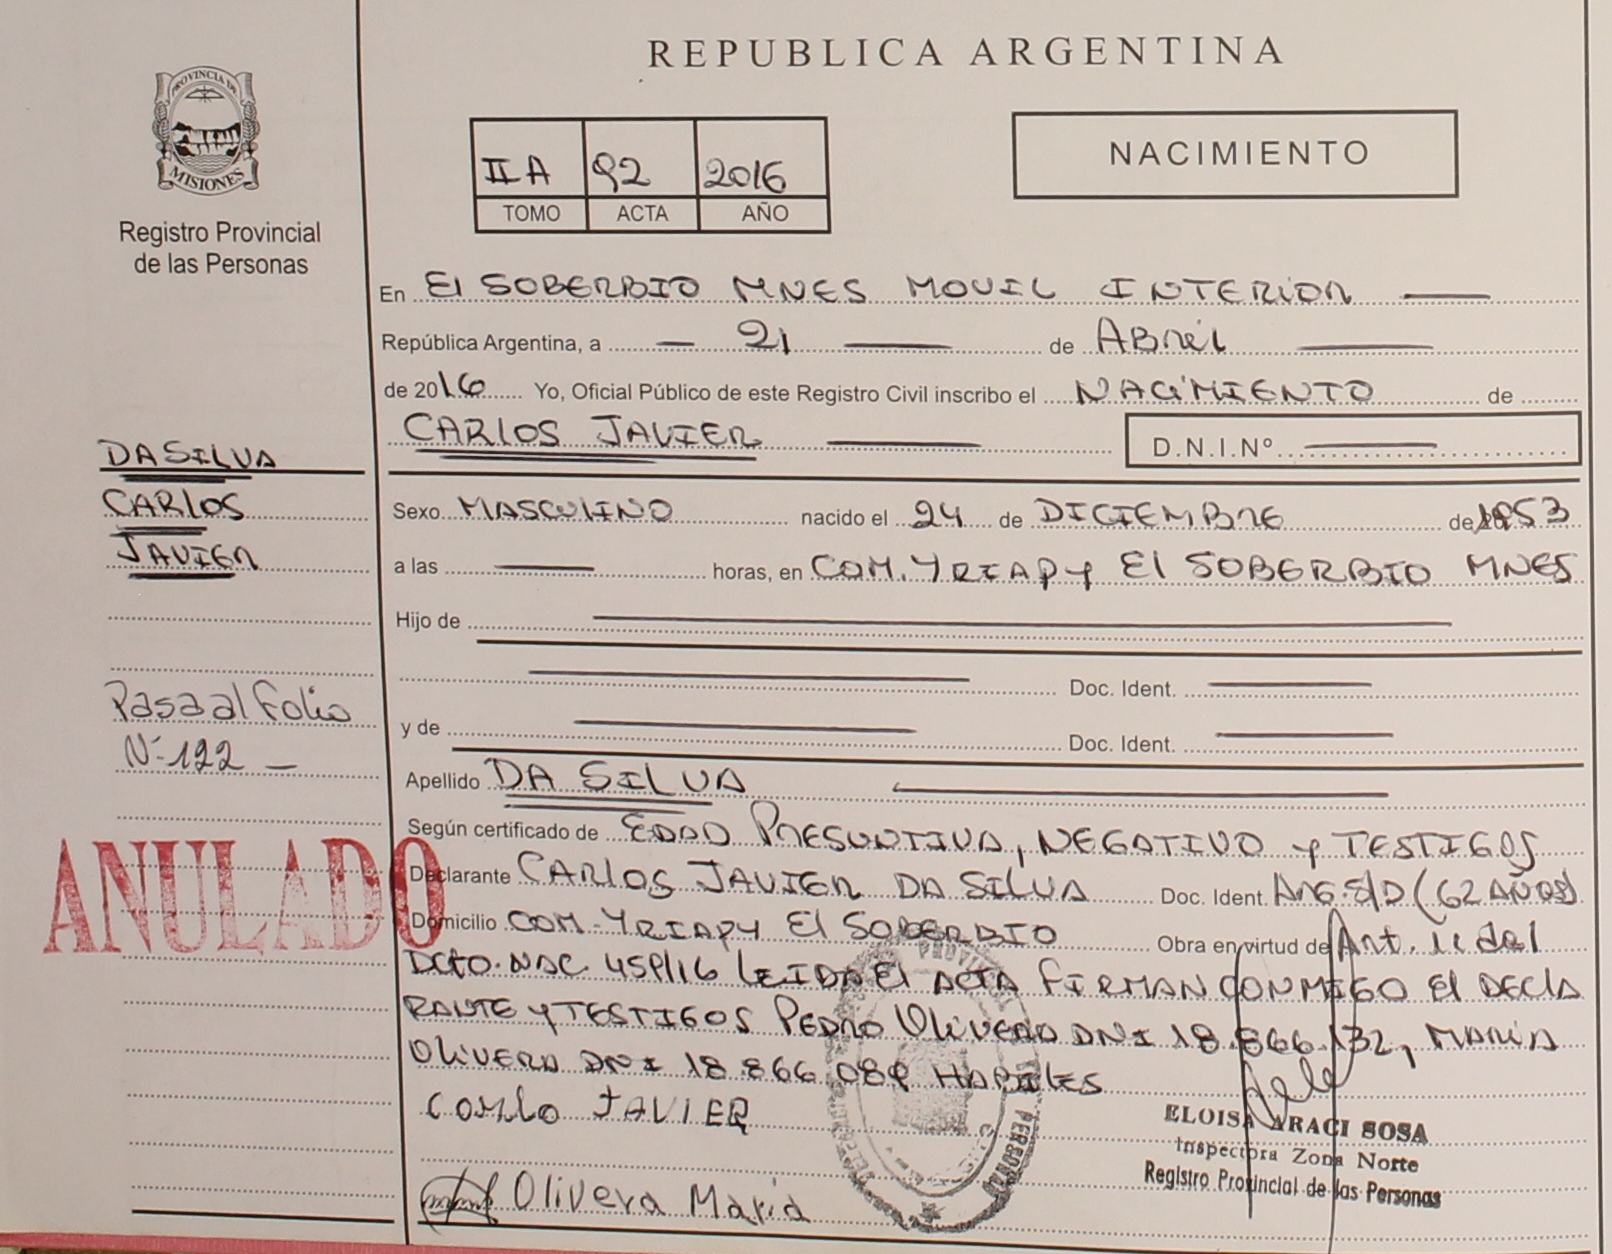 REPUBLICA ARGENTINA
PROVINCIA DE
MISIONES
Registro Provincial
de las Personas
IIA 92 2016
TOMO ACTA AÑO
NACIMIENTO
En El SOBERBIO MNES MOVIL INTERIOR
República Argentina, a 21 de ABRIL
de 2016 Yo, Oficial Público de este Registro Civil inscribo el NACIMIENTO de
CARLOS JAVIER D.N.I.Nº
DA SILVA
CARLOS
JAVIER
Sexo MASCULINO nacido el 24 de DICIEMBRE de 1953
a las horas, en COM. YRIAPY El SOBERBIO MNES
Hijo de
Doc. Ident.
y de
Doc. Ident.
Pasa al folio
Nº 122
Apellido DA SILVA
Según certificado de EDAD PRESUNTIVA, NEGATIVO y TESTIGOS
Declarante CARLOS JAVIER DA SILVA Doc. Ident. ARG. S/D (62 AÑOS)
ANULADO
Domicilio COM. YRIAPY El SOBERBIO Obra en virtud de Art. 11 del
DCTO. NAC. 459/16 LEIDA El ACTA FIRMAN CONMIGO El DECLA
RANTE y TESTIGOS PEDRO OliVERA DNI 18.866.132, MARIA
OliVERA DNI 18.866.089 HABILES
COMLO JAVIER
ELOISA ARACI SOSA
Inspectora Zona Norte
Registro Provincial de las Personas
Olivera Maria